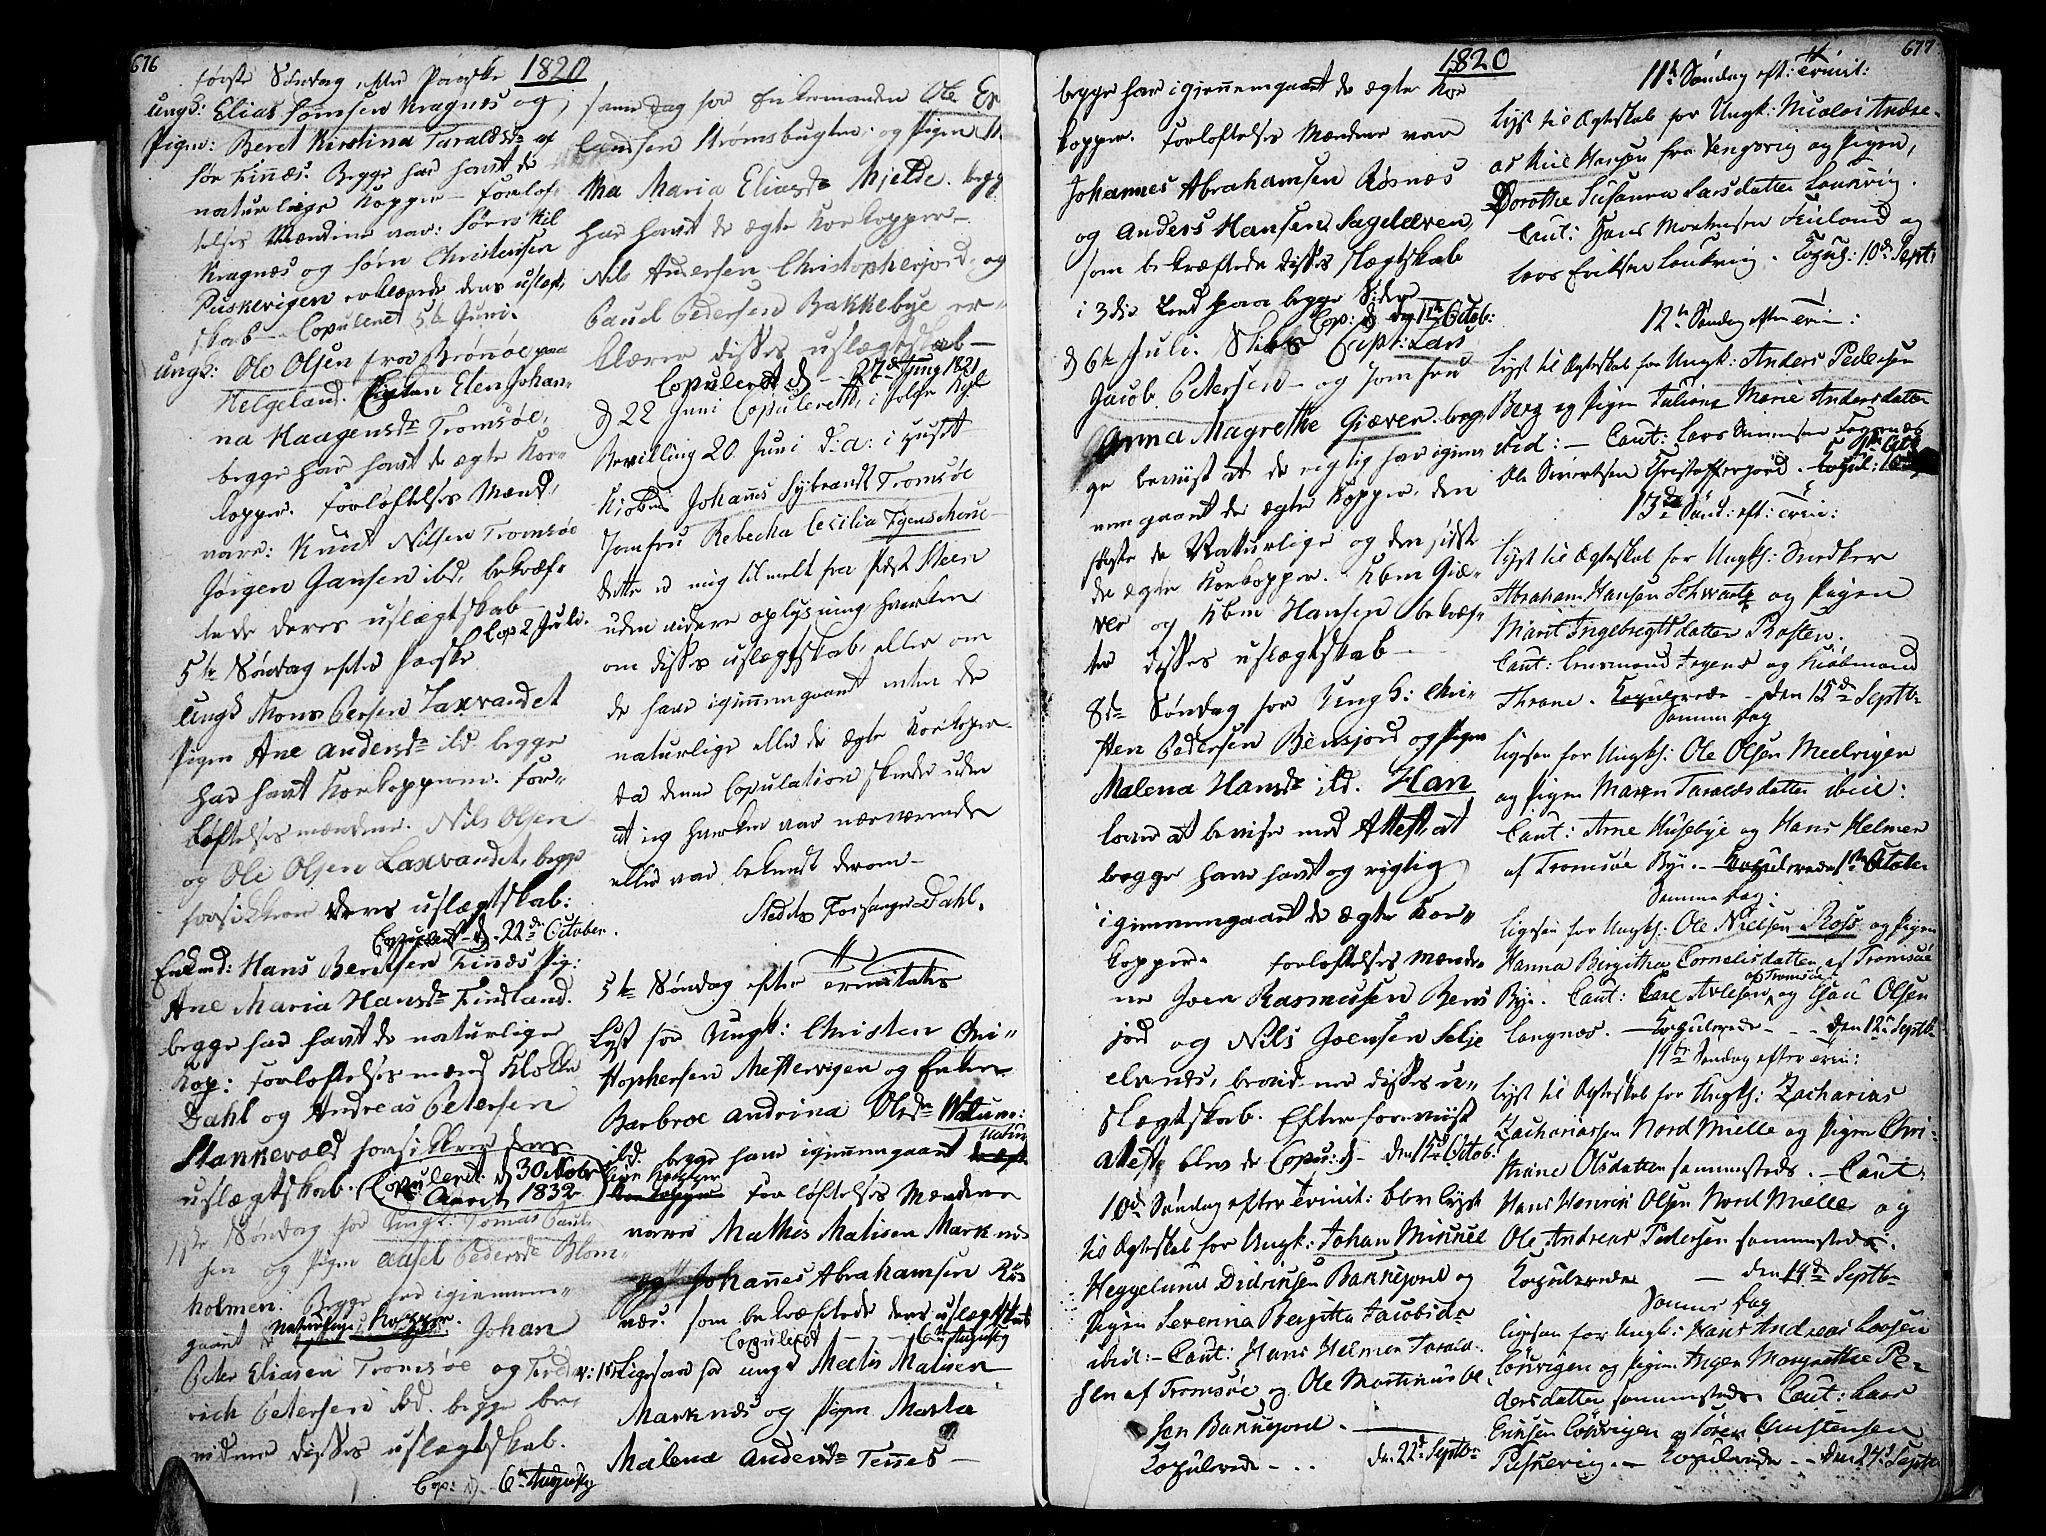 676
1820
første Søndag efter Paaske
ungk: Elias Somsen Kragnæs og
Pigen: Beret Kirstina Taraldsdr af
Sør Finnæs. Begge har havt de
naturlige Kopper - Forlof-
telses Mændene var: Søren Kil
Kragnæs og Sørn Christensen
Puskevigen erklærede deres uslegt-
skab - Copuleret 5te Juni.
ungk: Ole Olsen fra Brønøe paa
Helgeland. Enken Elen Johan-
na Haagensdr Tromsøe,
begge har havt de ægte Koe-
kopper. Forloftelses Mænd,
vare: Knut Nilsen Tromsøe
Jørgen Jansen ibd. bekræf-
tede deres uslægtskab -
Cop 2 Juli.
5te Søndag efter Paaske
ungk Mons Persen Laxvandet
Pigen Ane Andersdr ibd. begge
har havt Koekopperne. For-
løftelsesmændene. Nils Olsen
og Ole Olsen Laxvandet, begge
forsikkrer deres uslægtskab:
Copuleret d. 22de October.
Enkmd: Hans Bentsen Finnæs Pig:
Ane Maria Hansdr Findland.
begge har havt de naturlige
Kop: Forloftelsesmænd Klokker
Dahl og Andreas Petersen
Stankevold forsikkrer deres
uslægtskab. Copuleret d 30 October
Aaret 1832
Søndag for Ungk: Tomas Paul-
sen og Pigen Aasel Pedersdr Blom-
holmen. Begge har igiennem-
gaaet de Naturlige Kopper. Johan
Peter Eliasen Tromsøe og Fred-
rich Petersen ibd. begge be-
vidner disses uslægtskab.
Cop: d. 6te Augusty
samme dag for Enkemanden Ole Er
landsen Strømsbugten og Pigen M
tha Maria Eliasdr Mjelde. begge
har havt de ægte Koekopper -
Nils Andersen Christopherjord og
Paul Pedersen Bakkebye er-
klærer disses uslægtskab -
Copuleret d - 27de Juny 1821
d 22 Juni Copuleret, i følge Kgl
Bevilling 20 Juni d: a: i huset
Kiøbmd Johannes Sybrandt Tromsøe
Jomfru Rebecka Cecilia Figenschoue
dette er mig tilmelt fra Præst Steen
uden videre oplysning hverken
om disses uslægtskab, eller om
de have igiennemgaaet enten de
naturlige eller de ægte Koekopper
da denne Copulation skeede uden
at jeg hverken var nærværende
eller var bekendt derom -
Stedets Forsanger Dahl.
5te Søndag efter Trinitatis
Lyst for Ungk: Christen Chri-
stophersen Mestervigen og Enken
Barbroe Andrina Olsdr Watum:
ibd. begge have igiennemgaaet
Forløftelses Mændene
varer Mathis Matisen Marknæs
og Johannes Abrahamsen Røs
næs. som bekræftede deres uslægtskab
Copuleret - - 6te Augusty
Ligesaa for ungk Matis Matisen
Marknæs og Pigen Marta
Malena Andersdr Tennes -
677
1820
begge har igiennemgaaet de ægte Koe
kopper. Forloftelses Mændene var
Johannes Abrahamsen Røsnæs
og Anders Hansen Sagelæven,
som bekræftede disses slægtskab
i 3die Leed paa begge Sider
Cop: d den 1ste Octob:
d 6te Juli. Skibs Capt: Lars
Jacob Petersen - og Jomfru
Anna Magrethe Giæver. beg-
ge beviist at de rigtig har igien-
nemgaaet de ægte Kopper, den
første de Naturlige og den sidste
de ægte Koekopper. Kbm Giæ-
ver og Kbm Hansen bekræf-
ter disses uslægtskab -
8de Søndag for Ungk: Chri-
sten Pedersen Bensjord og Pigen
Malena Hansdr ibd. Han
lover at bevise med Attest, at
begge have havt og rigtig
igiennemgaaet de ægte Koe-
kopper. Forloftelses Mænde-
ne Joen Rasmusen Bens
jord og Nils Joensen Selje
elvnes, bevidner disses u-
slægtskab. Efter foreviist
Attest blev de Copu: d - den 15de Octob:
10de Søndag efter Trinit: blev lyst
til Ægteskab for Ungk: Johan Mikkel
Heggelund Didriksen Bakkejord og
Pigen Severina Bergitta Jacobsdr
ibid: - Caut: Hans Helmer Tarald-
sen af Tromsøe og Ole Martinus Ol-
sen Bakkejord. -
Kopulerede - - den 22de Septbr
11te Søndag eft: Trinit:
Lyst til Ægteskab for Ungk: Nicolai Andre-
as Kiil Hansen fra Vengsvig og Pigen,
Dorothe Susanna Larsdatter Laukvig.
Caut: Hans Mortensen Finland og
Lars Eriksen Laukvig. Copul: 10de Septr:
12te Søndag efter Trin:
Lyst til Ægteskab for Ungk: Anders Pedersen
Berg og Pigen Juliana Marie Andersdatter
ibid: - Caut: Lars Simensen Fagernæs
Ole Sivertsen Christofferjord. Copul:
13de Sønd: eft: Trin:
Lyst til Ægteskab for Ungk: Snedker
Abraham Hansen Schwartz og Pigen
Marit Ingebregtsdatter Rosten.
Caut: Lensmand Irgens og Kiøbmand
Throne. Kopulerede - den 15de Septbr
Samme Dag
ligesaa for Ungk: Ole Olsen Meelvigen
og Pigen Maren Taraldsdatter ibid:
Caut: Arne Husebye og Hans Helmer
af Tromsøe Bye. - Kopulerede 1ste October
Samme Dag:
ligesaa for Ungk: Ole Nielsen Ross og Pigen
Hanna Birgitha Cornelisdatter af Tromsøe
Bye. Caut: Carl Arlesen af Tromsøe og Paul Olsen
Langnæs. - Kopulerede - - den 12te Septbr
14de Søndag efter Trin:
Lyst til Ægteskab for Ungk: Zacharias
Zachariassen Nord Mielle og Pigen Chri-
stiane Olsdatter sammesteds. - Caut:
Hans Henrik Olsen Nord Mielle og
Ole Andreas Pedersen sammesteds.
Kopulerede - den 14de Septbr
Samme Dag
ligesaa for Ungk: Hans Andreas Larsen
Løkvigen og Pigen Inger Margrethe Pe-
dersdatter sammesteds. Caut: Lars
Eriksen Løkvigen og Søren Christensen
Puskevig. - Kopulerede - - den 24de Septbr